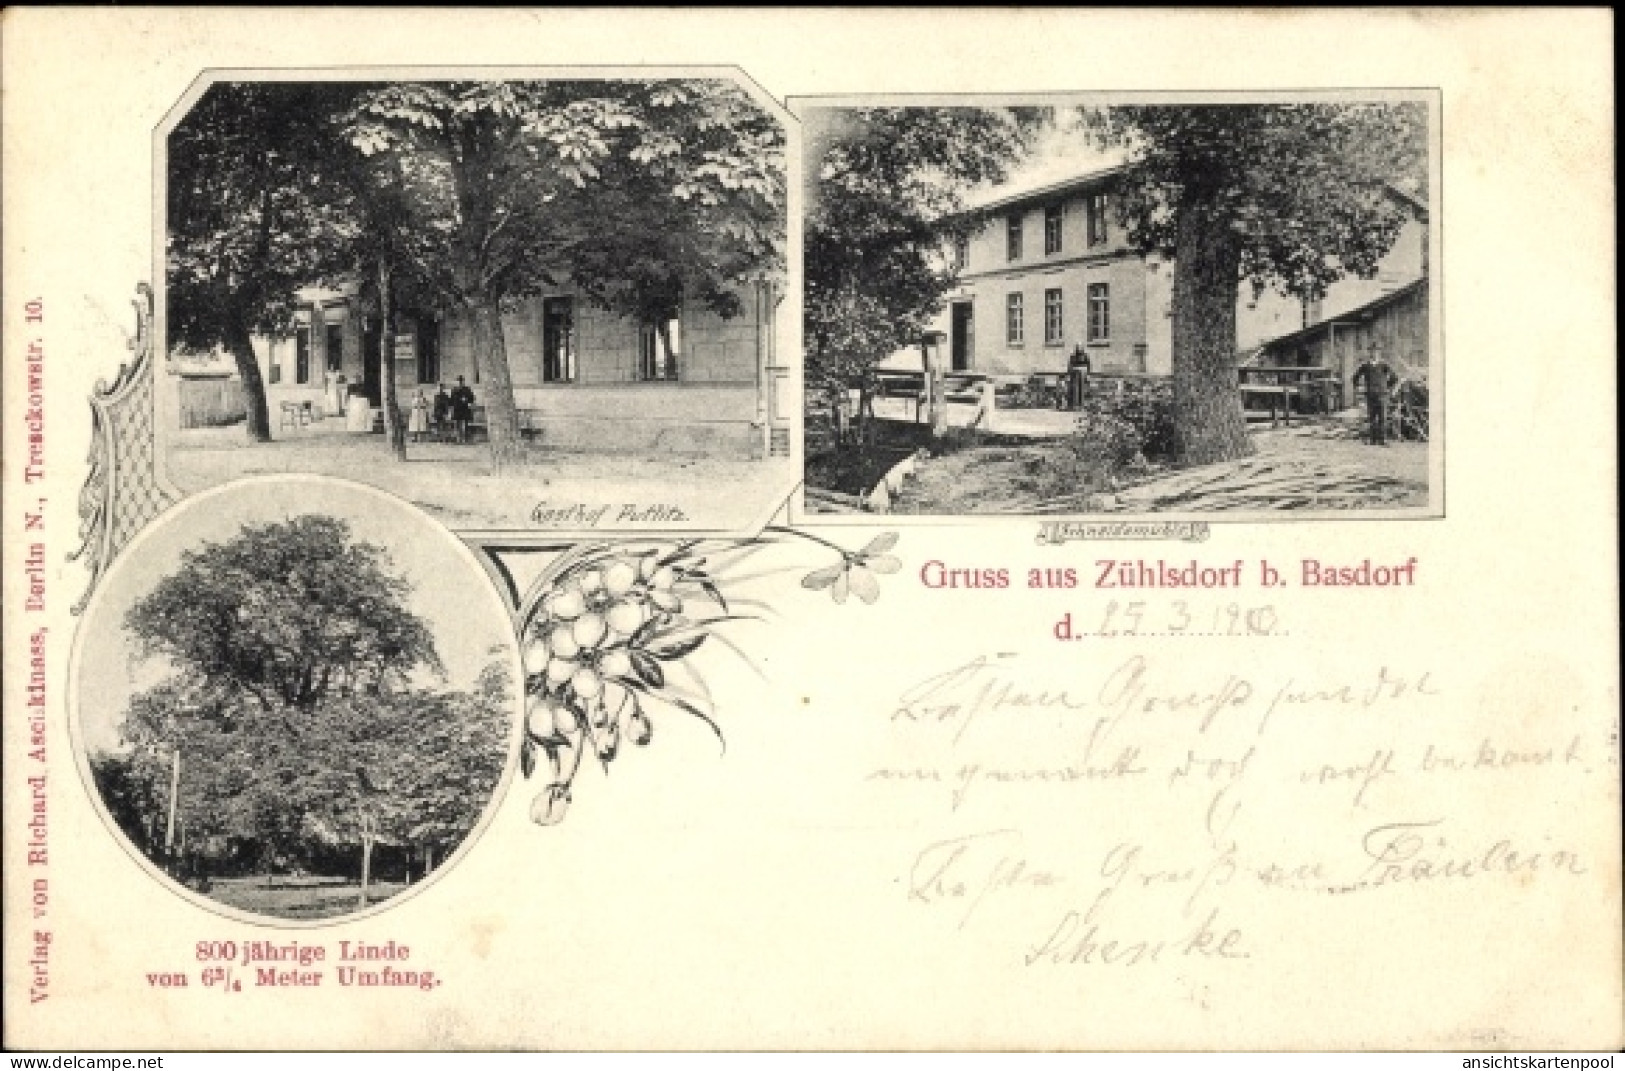 Gasthof Putlitz.
Schneidemühle
Gruss aus Zühlsdorf b. Basdorf
d. 25 3 1900
Besten Gruß sendet
ungenannt doch wohl bekannt.
Beste Gruß an Fräulein
Schenke.
800 jährige Linde
von 6¾ Meter Umfang.
Verlag von Richard Aschkinass, Berlin N., Tresckowstr. 10.
delcampe.net
ansichtskartenpool